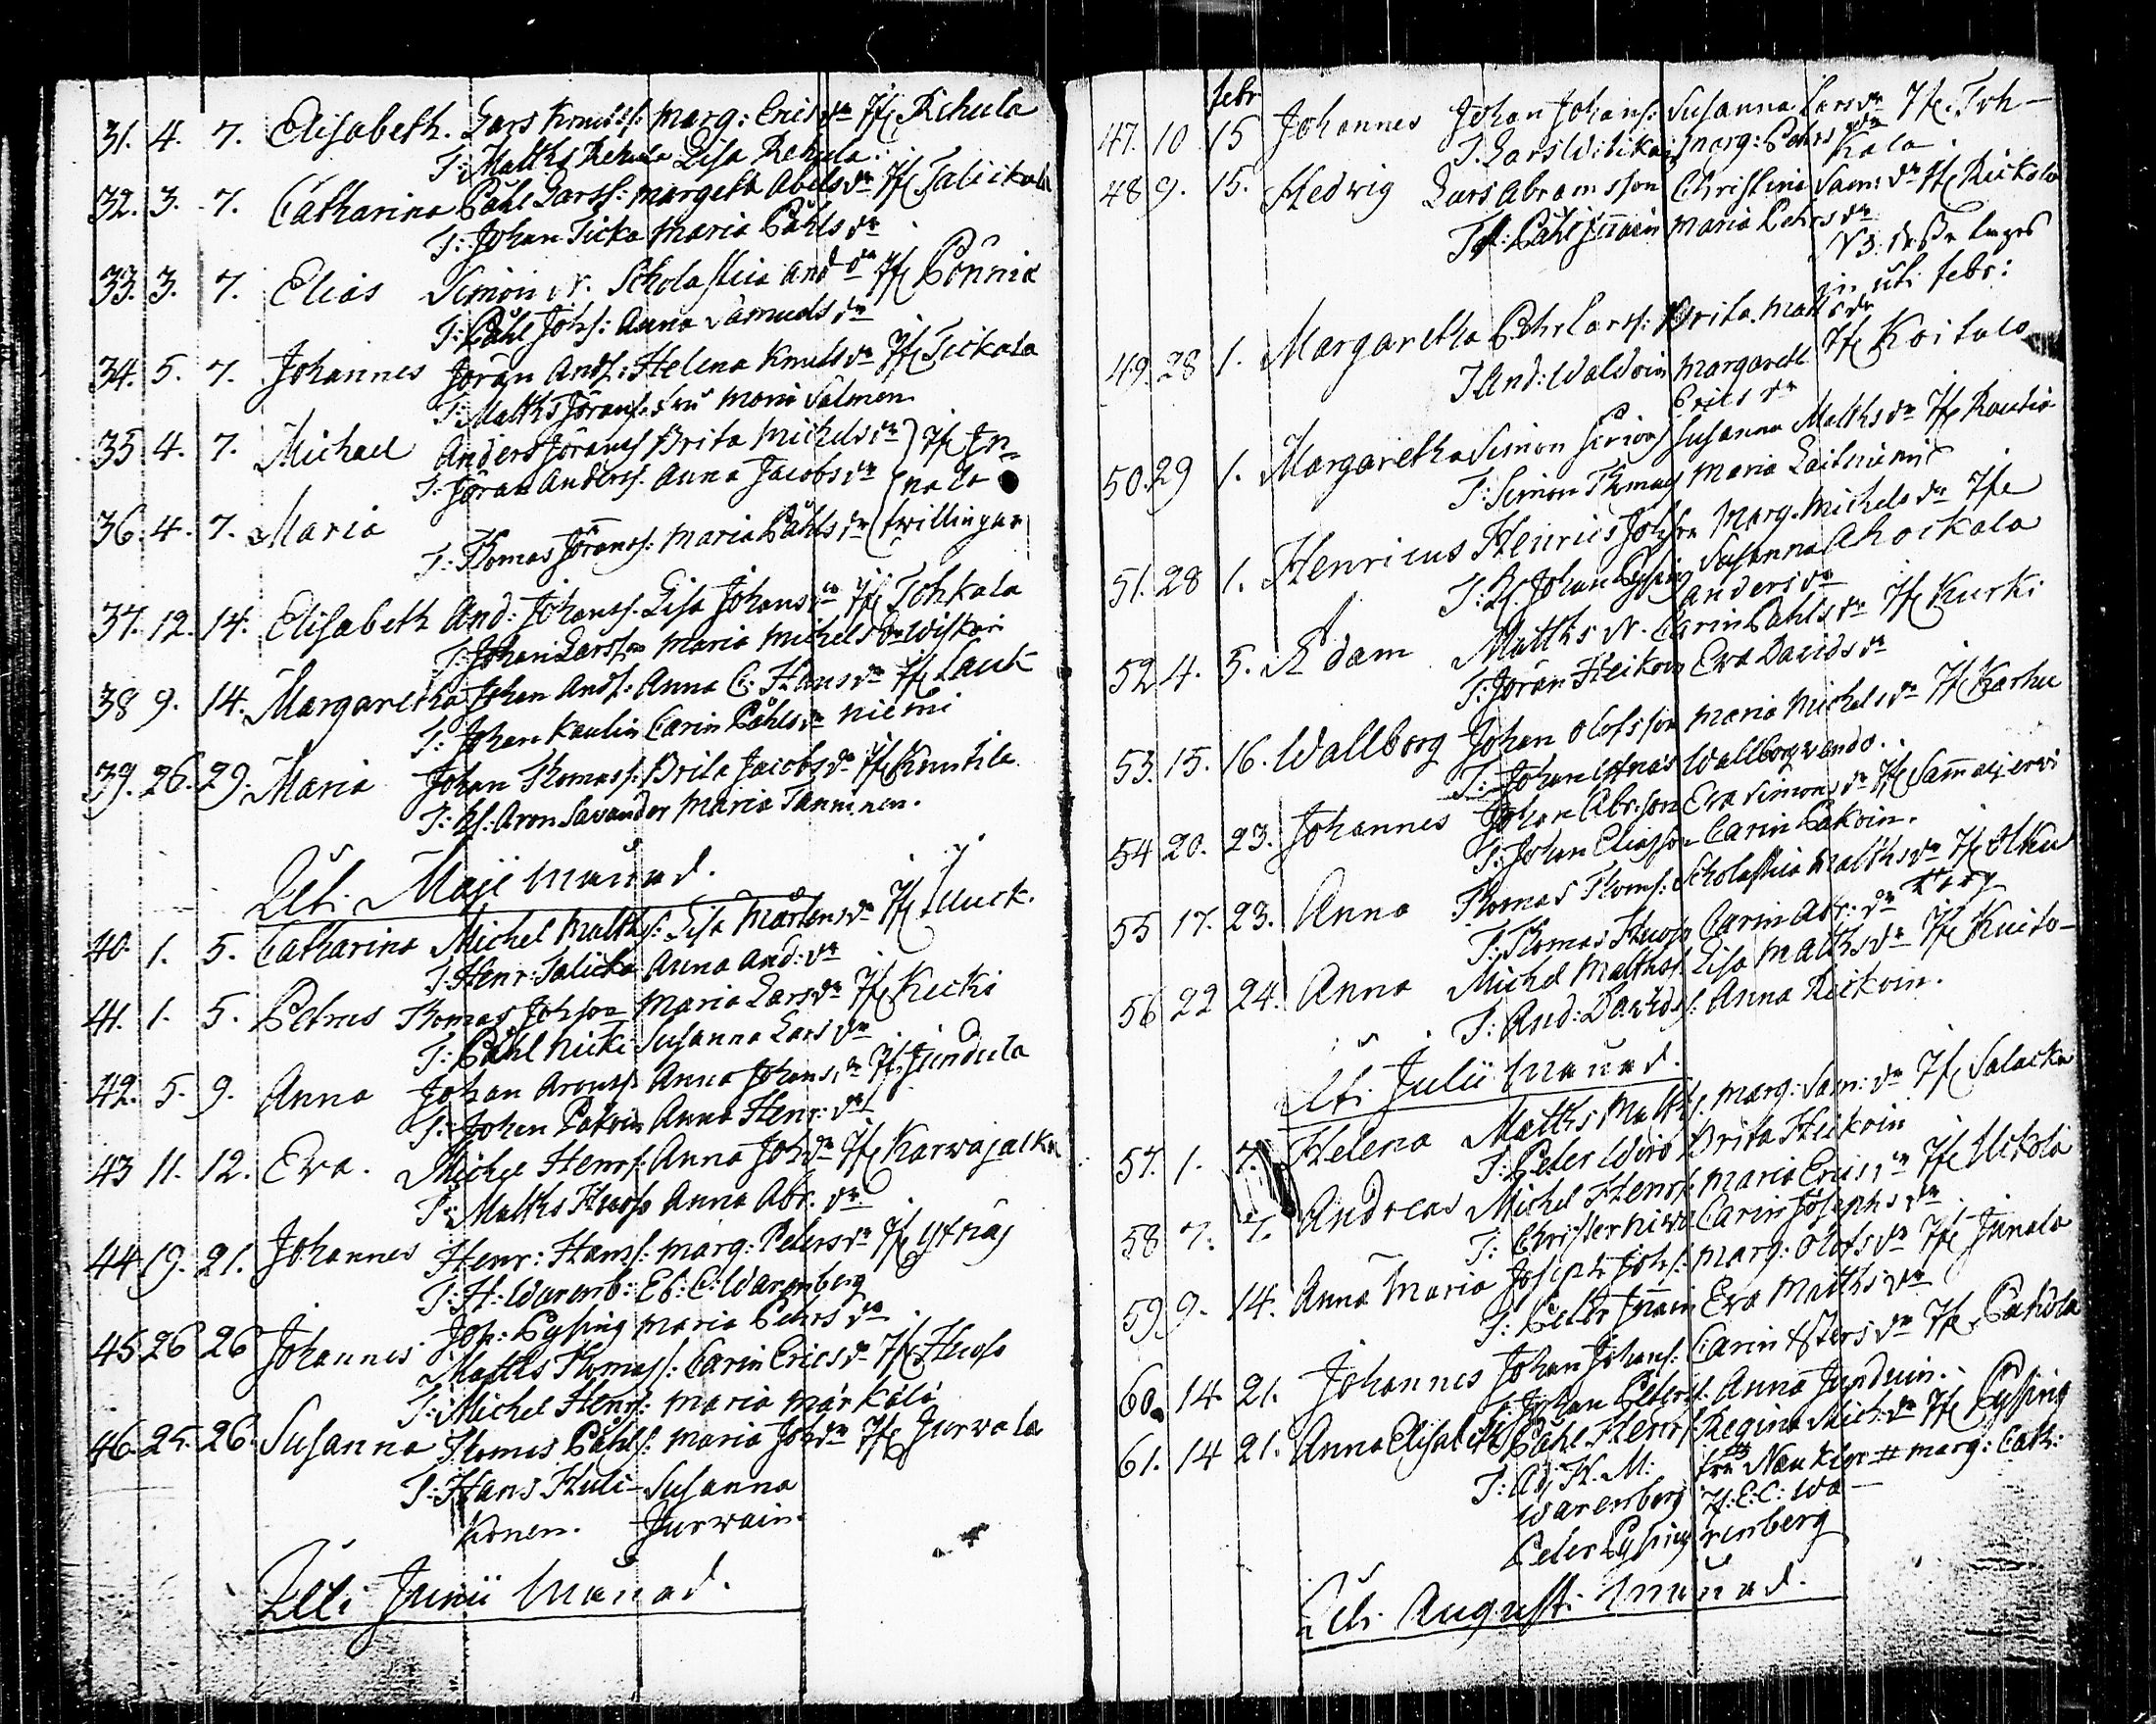 31. 4. 7. Elisabeth. Lars Knutss: Marg: Ericsdr Ifr Rehula
T: Matths Rehula Lisa Rehula.
32. 3. 7. Catharina Påhl Larss: Margeta Abelsdr Ifr Talickala
T: Johan Ticka Maria Påhlsdr
33. 3. 7. Elias Simon N. Scholastica Anddr Ifr Pönniä
T: Påhl Johs: Anna Samuelsdr
34. 5. 7. Johannes Jöran Ands: Helena Knutsdr Ifr Tickala
T: Matths Jörans. Maria Salmen
35 4. 7. Michael Anders Jörans Brita Michelsdr Ifr In
T: Jöran Anderss. Anna Jacobsdr nala
36. 4. 7. Maria
T: Thomas Jöranss: Maria Påhlsdr twillingar
37. 12. 14. Elisabeth And: Johanss. Lisa Johansdr Ifr Tohkala
T: Johan Larsson Maria Michelsdr Wiskari
38 9. 14. Margaretha Johan Ands: Anna C: Hansdr Ifr Laut-
T: Johan Kaulin Carin Påhlsdr niemi
39. 26. 29. Maria Johan Thomass: Brita Jacobsdr Ifr Knutila
T: Aron Savander Maria Tanninen.
Uti Maji månad.
40 1. 5. Catharina Michel Matths: Lisa Mårtensdr Ifr Muck.
T: Henr: Talicka Anna And: dr
41. 1. 5. Petrus Thomas Johson Maria Larsdr Ifr Kecki
T: Påhl Kecki Susanna Larsdr
42. 5. 9. Anna Johan Aronss. Anna Johansdr Ifr Jundula
T: Johan Pakoin Anna Henr: dr
43 11. 12. Eva. Michel Henrs: Anna Johdr Ifr Karwajalka
T: Matths Huoso Anna Abr. dr
44 19. 21. Johannes Henr: Hanss: Marg: Petersdr Ifr Ytnäs
T: H: Warenb: Eb: C: Warenberg
45 26 26 Johannes Joh: Pyssing Maria Pehrsdr
Matths Thomass: Carin Ericsdr Ifr Huoso
T: Michel Henrs: Maria Märkälä
46. 25. 26. Susanna Thomas Påhls: Maria Johdr Ifr Jurvala
T: Hans Huli- Susanna
konen. Jurvain.
Uti Junii månad.
febr
47. 10 15 Johannes Johan Johans: Susanna Larsdr Ifr Toh-
T. Lars Witikai Marg: Pehrsdr kala
48 9. 15. Hedwig Lars Abramsson Christina Sam: dr Ifr Rickola
T: Påhl Innain Maria Pehrsdr
NB. desse tages
in uti febr:
49. 28 1. Margaretha Pehr Larss: Brita Mattsdr
T And: Waldoin Margareth Ifr Koitala
Ericsdr
50. 29 1. Margaretha Simon Susanna Mathsdr Ifr Rautia
T: Simon Thomas Maria Laitiniemi
51. 28 1. Henricus Henrics Johson Marg. Michelsdr Ifr
T: Johan Pyssing Susanna Ahockala
Andersdr
52 4. 5. Adam Matths N. Carin Påhlsdr Ifr Kurki
T: Jöran Heikoin Eva Davidsdr
53. 15. 16. Wallborg Johan Olofsson Maria Michelsdr Ifr Karhu
T: Johan Wallborg
54 20. 23. Johannes Johan Abr:son Eva Simonsdr Ifr Sammaljerwi
T: Johan Eliasson Carin Pakoin.
55 17. 23. Anna Thomas Thoms: Scholastica Matthsdr Ifr Alku
T: Thomas Huoso Carin Abr: dr
56 22 24. Anna Michel Matthss. Lisa Mathsdr Ifr Kuito-
T: And: Davids: Anna Reikoin.
Uti Julii månad.
57. 1. 7. Helena Matths Matths. Marg: Sam: dr Ifr Salacka
T: Peter Wiro Brita Heikoin
58 7. 7. Andreas Michel Henrs: Maria Ericsdr Ifr Uckola
T: Christer Niwa Carin Josephsdr
59 9. 14. Anna Maria Joseph Johs: Marg: Olofsdr Ifr Innala
T: Peter Innain Eva Matthsdr
60. 14 21. Johannes Johan Johans: Carin Estersdr Ifr Pakola
T: Johan Peters: Anna Junduin.
61. 14 21. Anna Elisabeth Påhl Henrs. Regina Mich:dr Ifr Pyssing
T: Adj. K. M: fru Naukler # Marg: Cath:
Warenberg E: C: Wa-
Peter Pyssing renberg
Uti Augusti månad.